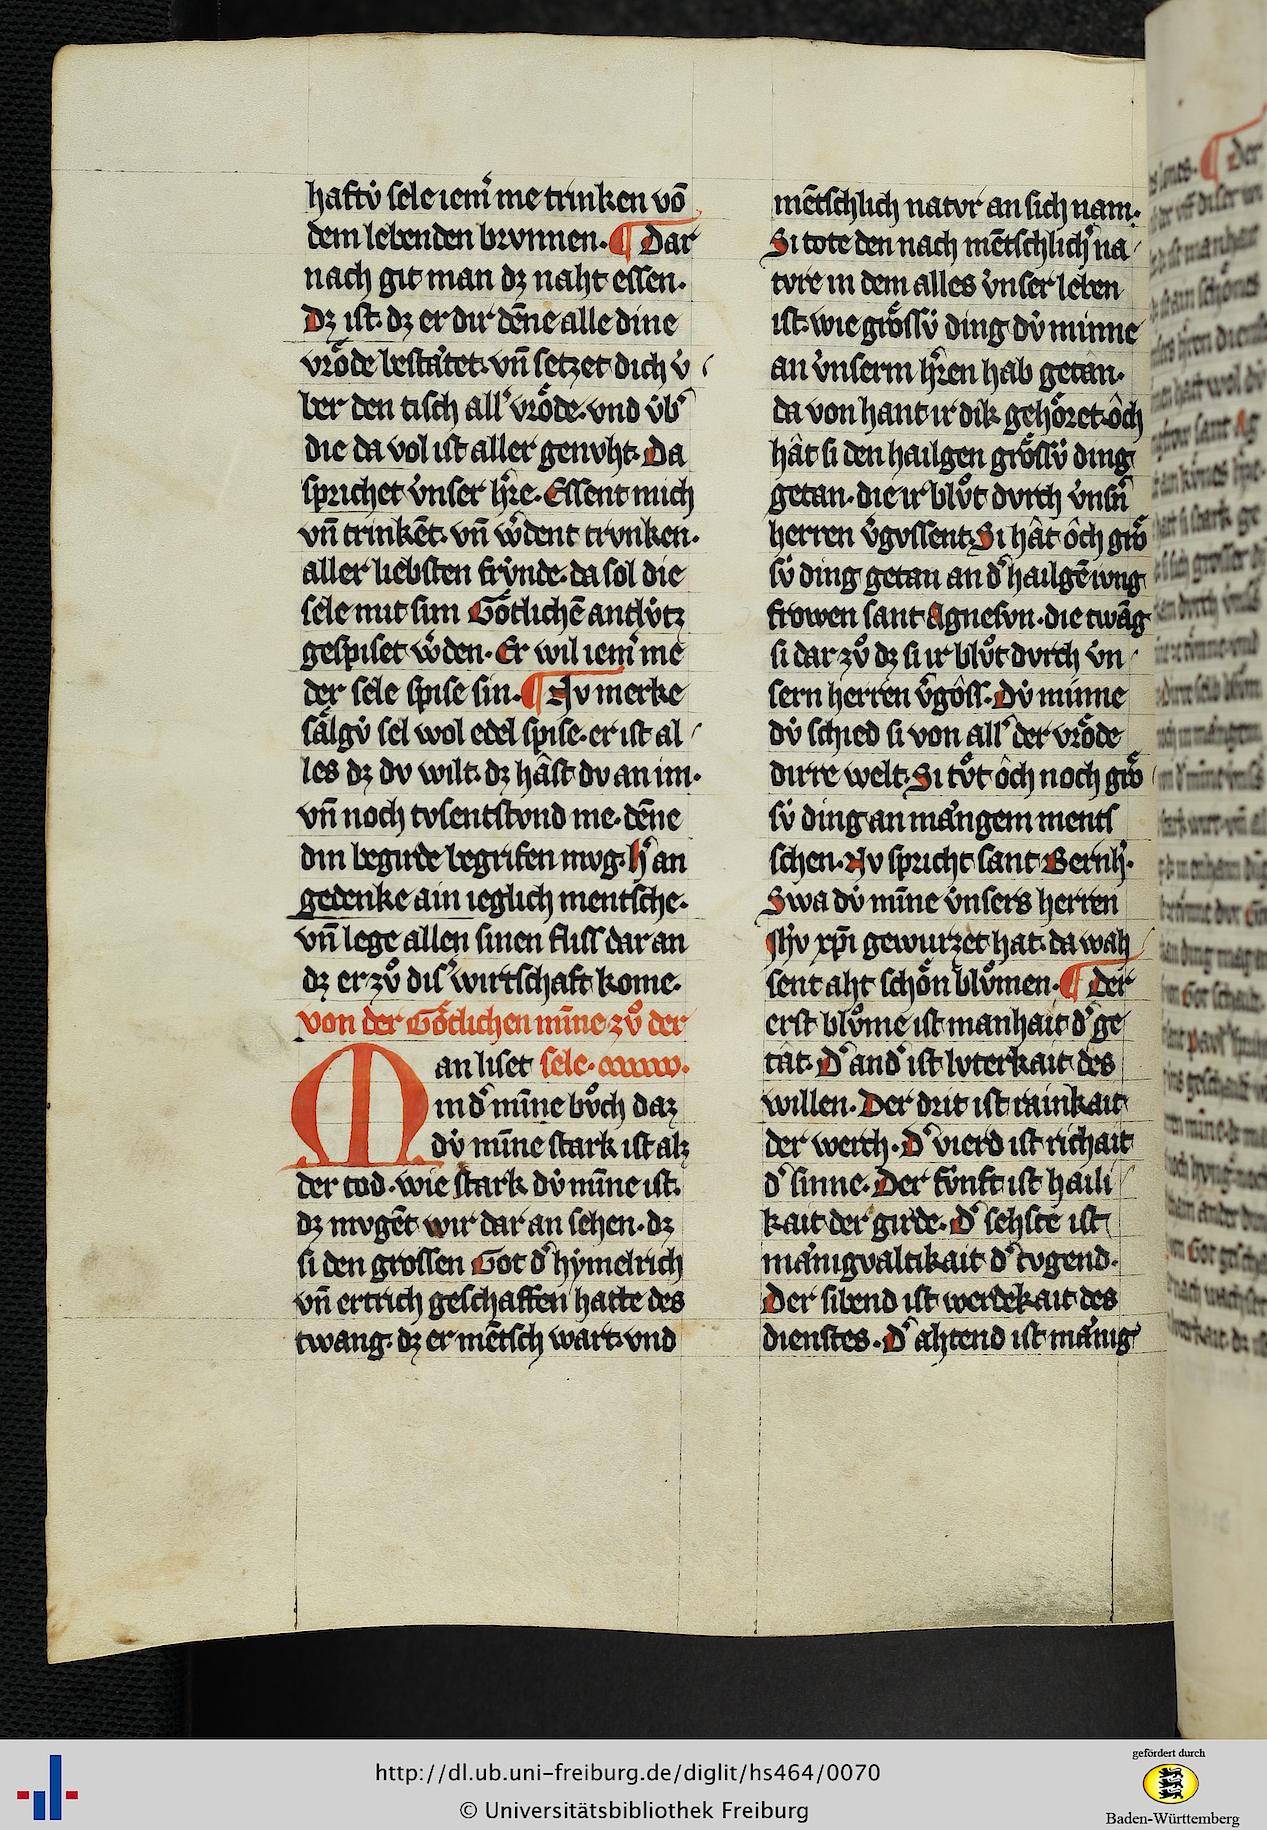 haftv̓ sele iem̄ me trinken vō
dem lebenden brvnnen. ¶ Dar
nach git man dz naht essen.
Dz ist. dz er dir dēne alle dine
vrôde bestâtet. vn̄ setzet dich v̓
ber den tisch all' vrôde. vnd v̓b'
die da vol ist aller genvht. Da
sprichet v̓nser h're. Essent mich
vn̄ trinkēt. vn̄ w'dent trvnken.
aller liebsten frv̓nde. da sol die
sele mit sim Gôtlichē antlv̓tz
gespiset w'den. Er wil iem̄ me
der sele spise sin. ¶ Nv merke
sâlgv̓ sel wol edel spise. er ist al
les dz dv wilt. dz hâst dv an im.
vn̄ noch tvsentstvnd me. dēne
din begirde begrifen mvg. h' an
gedenke ain ieglich mentsche.
vn̄ lege allen sinen fliss dar an
dz er zv̊ dis' wirtschaft kome.
von der Gôtlichen mīne zv̊ der
sele. xxxxv.
Man liset
in d' mīne bv̊ch daz
dv̓ mīne stark ist alz
der tod. wie stark dv̓ mīne ist.
dz mvgēt wir dar an sehen. dz
si den grossen Got d' hymelrich
vn̄ ertrich geschaffen hatte des
twang. dz er mētsch wart. vnd
mētschlich natvr an sich nam.
Si tote den nach mētschlich' na
tvre in dem alles v̓nser leben
ist. wie grôssv̓ ding dv̓ minne
an v̓nserm h'ren hab getan.
da von hant ir dik gehôret. ôch
hât si den hailgen grôssv̓ ding
getan. die ir blv̊t dvrch v̓nsn̄
herren v'gvssent. Si hât ôch grô
sv̓ ding getan an d' hailgē ivng
frowen sant Agnesvn. die twāg
si dar zv̊ dz si ir blv̊t dvrch v̓n
sern herren v'gôss. Dv̓ minne
dv̓ schied si von all' der vrôde
dirre welt. Si tv̊t ôch noch grô
sv̓ ding an mângem ment
schen. Nv spricht sant Bernh'.
Swa dv̓ mīne v̓nsers herren
Jhv xp̄i gewurzet hat. da wah
sent aht schôn blv̊men. ¶ Der
erst blv̊me ist manhait d' ge
tât. D' and' ist lvterkait des
willen. Der drit ist rainkait
der werch. D' vierd ist richait
d' sinne. Der fv̓nft ist haili
kait der girde. D' sehste ist
mânigvaltikait d' tvgend.
Der sibend ist werdekait des
dienstes. D' ahtend ist mânig
http://dl.ub.uni-freiburg.de/diglit/hs464/0070
© Universitätsbibliothek Freiburg
gefördert durch
Baden-Württemberg